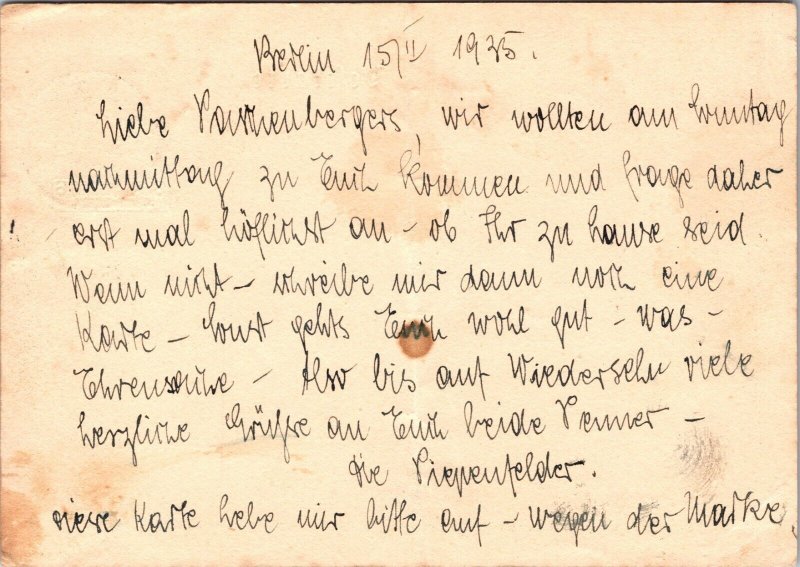 Berlin 15/II 1935.
Liebe Pannenbergers, wir wollten am Sonntag
nachmittag zu Euch kommen und frage daher
erst mal höflichst an – ob Ihr zu hause seid.
Wenn nicht – schreibe mir dann noch eine
Karte – sonst gehts Euch wohl gut – was –
Ehrensache – Also bis auf Wiedersehn viele
herzliche Grüsse an Euch beide Penner –
die Piepenfelder.
diese Karte hebe mir bitte auf – wegen der Marke.